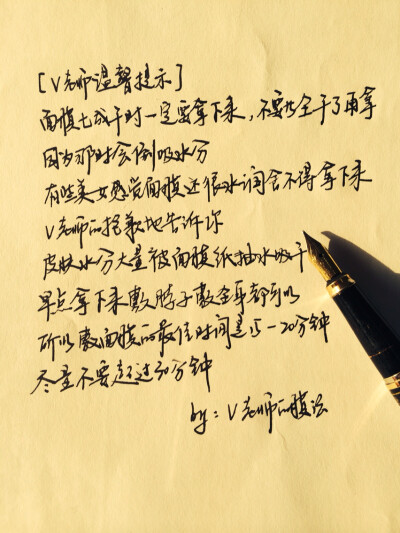 [V老师温馨提示]
面膜七成干时一定要拿下来，不要等全干了再拿
因为那时会倒吸水分
有些美女感觉面膜还很水润舍不得拿下来
V老师只抱歉地告诉你
皮肤水分大量被面膜纸抽水吸干
早点拿下来敷脖子敷全身都可以
所以敷面膜的最佳时间是15-20分钟
尽量不要超过30分钟
by：V老师的膜法